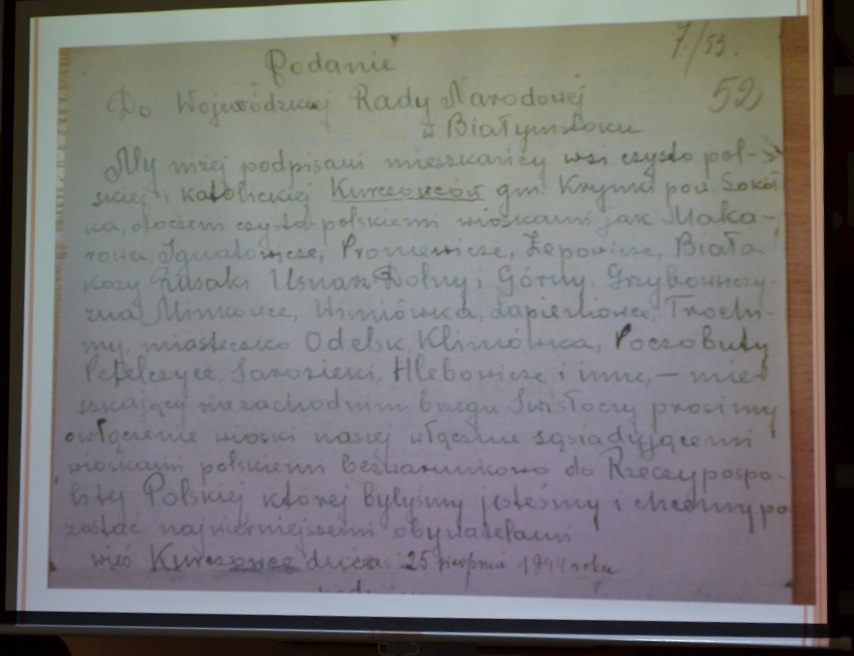 7/53.
Podanie
52
Do Wojewódzkiej Rady Narodowej
w Białymstoku
My niżej podpisani mieszkańcy wsi czysto pol-
skiej i katolickiej Kurczowców gm. Krynki pow. Sokół
ka, otoczeni czysto polskiemi wioskami jak Maka-
rowce, Ignatowicze, Proniewicze, Łepowicze, Biało-
kozy Rusaki Usnarz Dolny i Górny, Grzybowszczy-
zna Minkowce, Wiśniówka, Łapieniowce, Trochi-
my, miasteczko Odelsk, Klimówka, Poczobuty
Petelczyce, Jarosieki, Hlebowicze i inne, – miesz
szkający na zachodnim brzegu Świsłoczy prosimy
o włączenie wioski naszej włącznie sąsiadującemi
wioskami polskiemi bezwarunkowo do Rzeczypospo-
litej Polskiej której byłyśmy jesteśmy i chcemy po
zostać najwierniejszemi obywatelami
wieś Kurczowce dnia 25 sierpnia 1944 roku